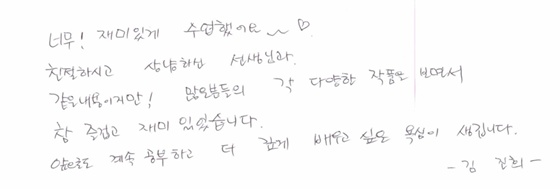 너무! 재미있게 수업했어요~ ♡
친절하시고 상냥하신 선생님과
같은내용이지만! 많은분들의 각 다양한 작품을 보면서
참 즐겁고 재미 있었습니다.
앞으로도 계속 공부하고 더 깊게 배우고 싶은 욕심이 생깁니다.
- 김 진희 -